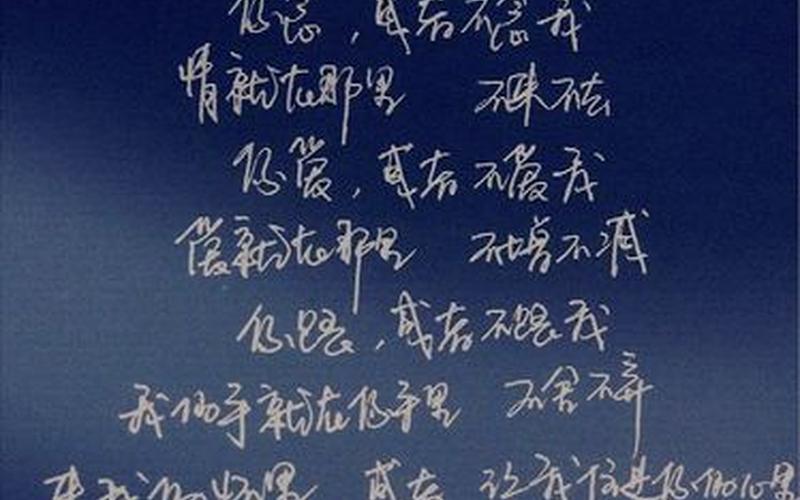 你念，或者不念我
情就在那里 不来不去
你爱，或者不爱我
爱就在那里 不增不减
你跟，或者不跟我
我的手就在你手里 不舍不弃
来我的怀里 或者 让我住进你的心里